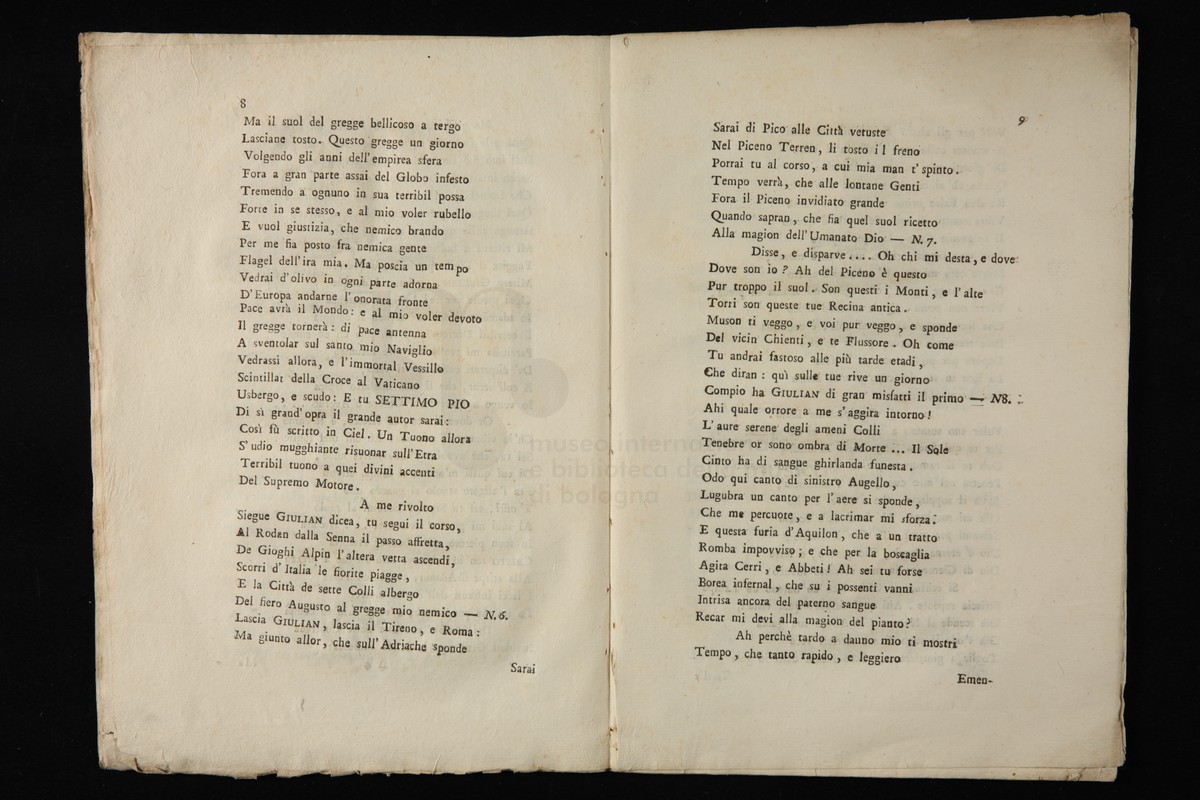 8
Ma il suol del gregge bellicoso a tergo
Lasciane tosto. Questo gregge un giorno
Volgendo gli anni dell'empirea sfera
Fora a gran parte assai del Globo infesto
Tremendo a ognuno in sua terribil possa
Forte in se stesso, e al mio voler rubello
E vuol giustizia, che nemico brando
Per me fia posto fra nemica gente
Flagel dell'ira mia. Ma poscia un tempo
Vedrai d'olivo in ogni parte adorna
D'Europa andarne l'onorata fronte
Pace avrà il Mondo: e al mio voler devoto
Il gregge tornerà: di pace antenna
A sventolar sul santo mio Naviglio
Vedrassi allora, e l'immortal Vessillo
Scintillar della Croce al Vaticano
Usbergo, e scudo: E tu SETTIMO PIO
Di sì grand'opra il grande autor sarai:
Così fù scritto in Ciel. Un Tuono allora
S'udio mugghiante risuonar sull'Etra
Terribil tuono a quei divini accenti
Del Supremo Motore.
A me rivolto
Siegue GIULIAN dicea, tu segui il corso,
Al Rodan dalla Senna il passo affretta,
De Gioghi Alpin l'altera vetta ascendi,
Scorri d'Italia le fiorite piagge,
E la Città de sette Colli albergo
Del fiero Augusto al gregge mio nemico — N.6.
Lascia GIULIAN, lascia il Tireno, e Roma:
Ma giunto allor, che sull'Adriache sponde
Sarai
9
Sarai di Pico alle Città vetuste
Nel Piceno Terren, li tosto il freno
Porrai tu al corso, a cui mia man t'spinto.
Tempo verrà, che alle lontane Genti
Fora il Piceno invidiato grande
Quando sapran, che fia quel suol ricetto
Alla magion dell'Umanato Dio — N. 7.
Disse, e disparve.... Oh chi mi desta, e dove
Dove son io? Ah del Piceno è questo
Pur troppo il suol. Son questi i Monti, e l'alte
Torri son queste tue Recina antica.
Muson ti veggo, e voi pur veggo, e sponde
Del vicin Chienti, e te Flussore. Oh come
Tu andrai fastoso alle più tarde etadi,
Che diran: quì sulle tue rive un giorno
Compio ha GIULIAN di gran misfatti il primo — N8.
Ahi quale orrore a me s'aggira intorno!
L'aure serene degli ameni Colli
Tenebre or sono ombra di Morte ... Il Sole
Cinto ha di sangue ghirlanda funesta.
Odo qui canto di sinistro Augello,
Lugubra un canto per l'aere si sponde,
Che me percuote, e a lacrimar mi sforza.
E questa furia d'Aquilon, che a un tratto
Romba impovviso; e che per la boscaglia
Agita Cerri, e Abbeti! Ah sei tu forse
Borea infernal, che su i possenti vanni
Intrisa ancora del paterno sangue
Recar mi devi alla magion del pianto?
Ah perchè tardo a danno mio ti mostri
Tempo, che tanto rapido, e leggiero
Emen-